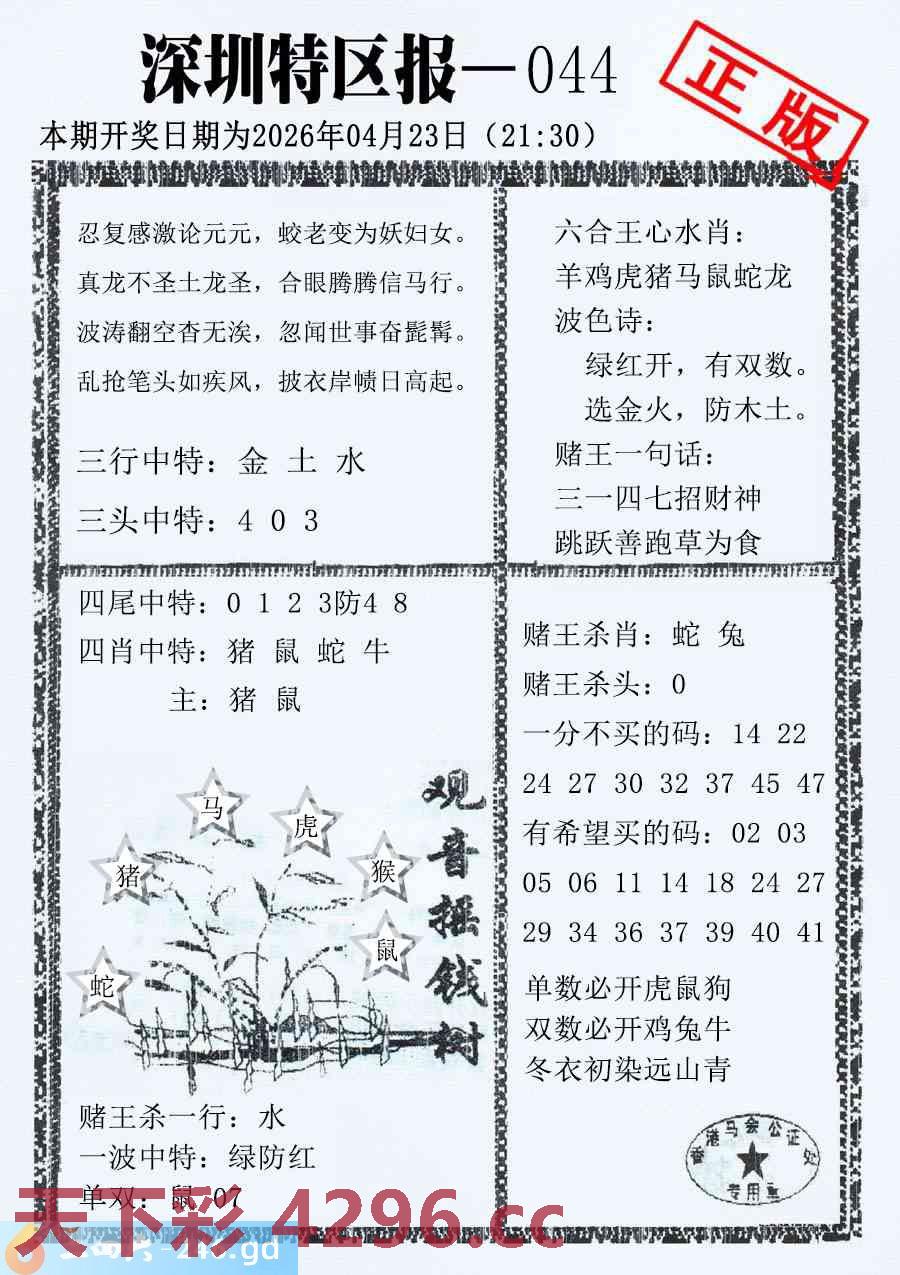 深圳特区报－044
正版
本期开奖日期为2026年04月23日（21:30）
忍复感激论元元，蛟老变为妖妇女。
真龙不圣土龙圣，合眼腾腾信马行。
波涛翻空杳无涘，忽闻世事奋髭髯。
乱抢笔头如疾风，披衣岸帻日高起。
三行中特：金 土 水
三头中特：4 0 3
六合王心水肖：
羊鸡虎猪马鼠蛇龙
波色诗：
绿红开，有双数。
选金火，防木土。
赌王一句话：
三一四七招财神
跳跃善跑草为食
四尾中特：0 1 2 3防4 8
四肖中特：猪 鼠 蛇 牛
主：猪 鼠
观音摇钱树
马
虎
猪
猴
鼠
蛇
赌王杀一行：水
一波中特：绿防红
单双：鼠 07
赌王杀肖：蛇 兔
赌王杀头：0
一分不买的码：14 22
24 27 30 32 37 45 47
有希望买的码：02 03
05 06 11 14 18 24 27
29 34 36 37 39 40 41
单数必开虎鼠狗
双数必开鸡兔牛
冬衣初染远山青
香港马会公证处
专用章
天下彩 4296.cc